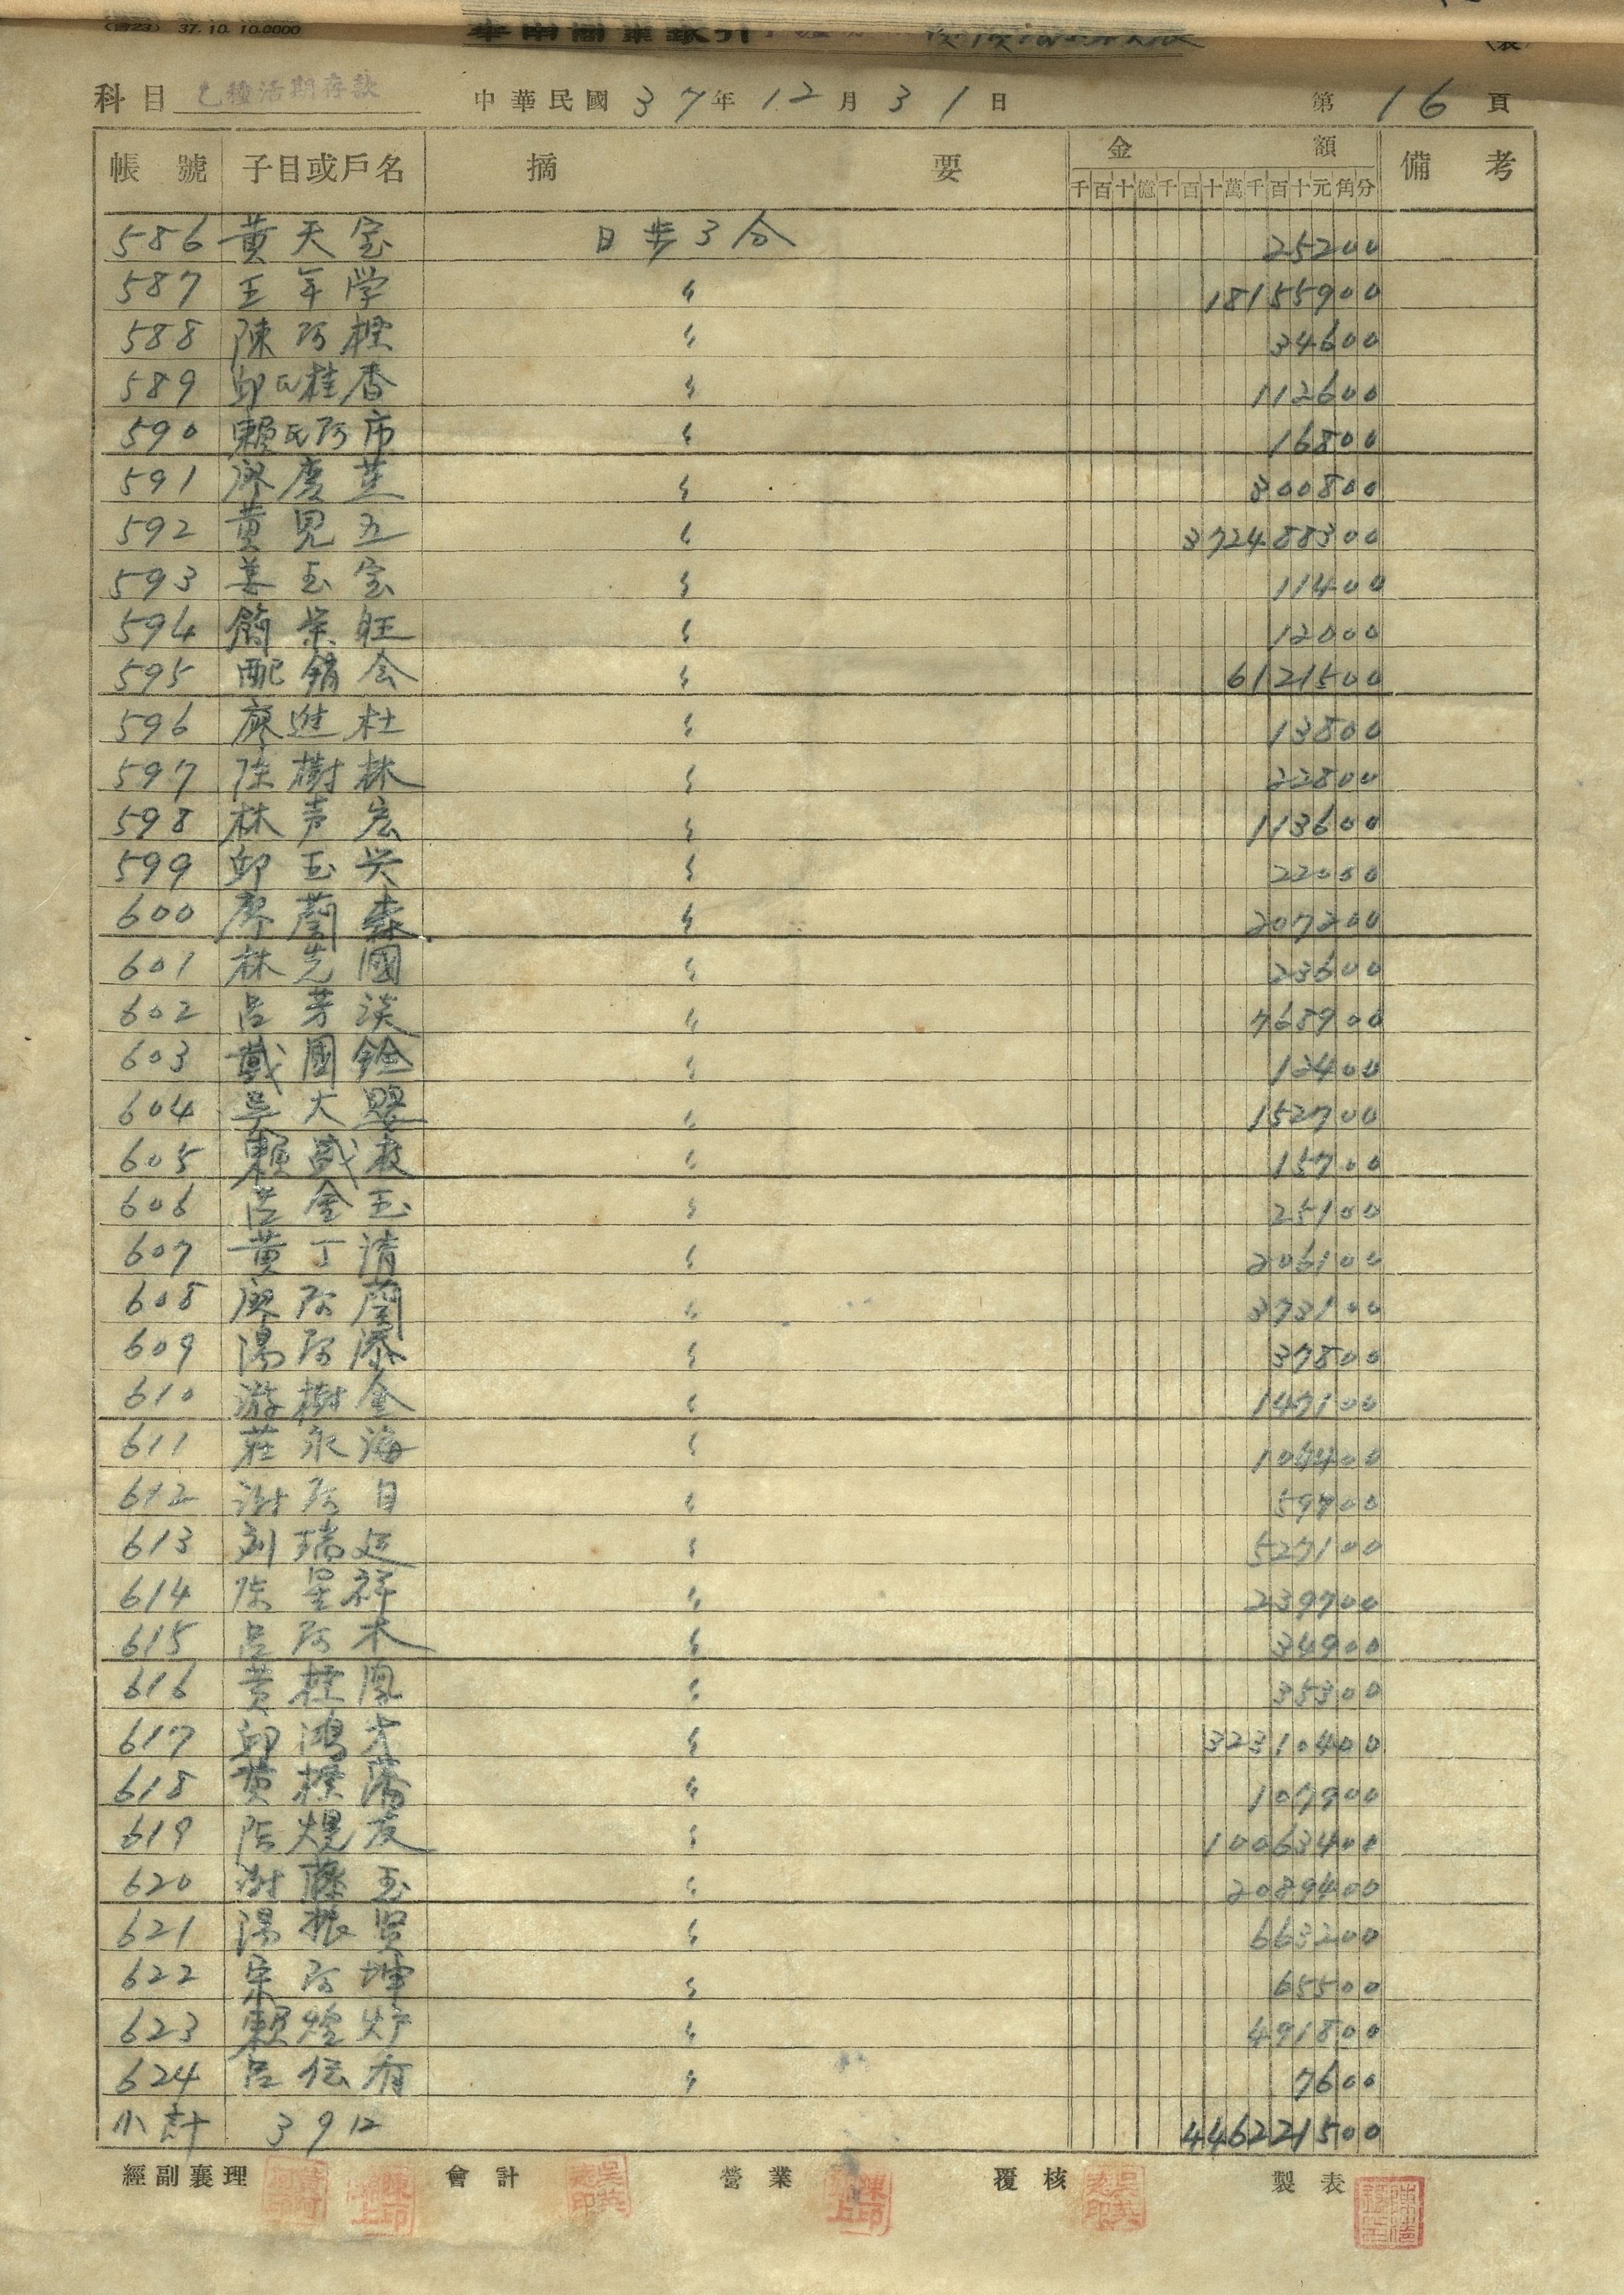 37.10.10.0000
科目 乙種活期存款 中華民國37年12月31日 第16頁
帳號 子目或戶名 摘要 金額 備考
千百十億千百十萬千百十元角分
586 黃天宝 日步3分 25200
587 王年学 〃 18155900
588 陳阿樫 〃 34600
589 邱氏桂香 〃 112600
590 賴氏阿市 〃 16800
591 廖慶 〃 300800
592 黃見五 〃 372488300
593 姜玉宝 〃 11400
594 簡荣旺 〃 12000
595 配銷会 〃 6121500
596 廖进杜 〃 13800
597 陈樹林 〃 22800
598 林声宏 〃 113600
599 邱玉兴 〃 22000
600 廖蘭森 〃 207200
601 林先國 〃 23600
602 呂芳淡 〃 768900
603 戴國銓 〃 12400
604 吳大 〃 152700
605 賴盛枝 〃 15700
606 呂金玉 〃 25100
607 黃丁清 〃 206100
608 廖阿蘭 〃 373100
609 湯阿添 〃 37800
610 游樹金 〃 147100
611 莊永海 〃 104400
612 谢阿日 〃 59700
613 刘瑞廷 〃 527100
614 陈呈祥 〃 239700
615 呂阿木 〃 34900
616 黃桂鳳 〃 35300
617 邱鴻才 〃 32310400
618 黃樑 〃 107900
619 阮焜友 〃 10063400
620 谢藤玉 〃 2089400
621 湯振贤 〃 663200
622 宋阿坤 〃 65500
623 賴煌炉 〃 491800
624 呂伝有 〃 7600
小計 39口 446221500
經副襄理 會計 營業 覆核 製表